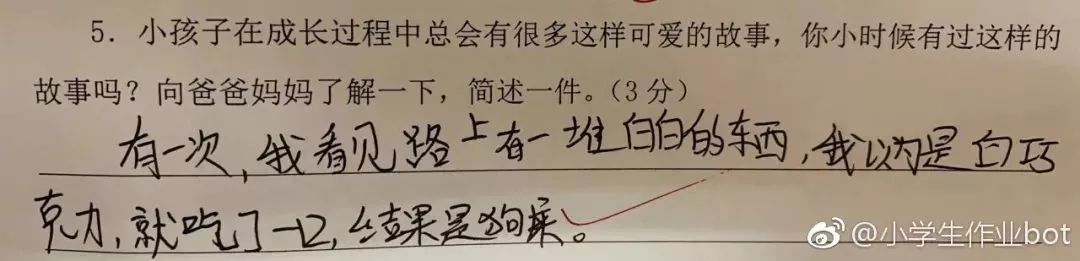 5. 小孩子在成长过程中总会有很多这样可爱的故事，你小时候有过这样的
故事吗？向爸爸妈妈了解一下，简述一件。（3 分）
有一次，我看见路上有一堆白白的东西，我以为是白巧
克力，就吃了一口，结果是狗屎。
@小学生作业bot